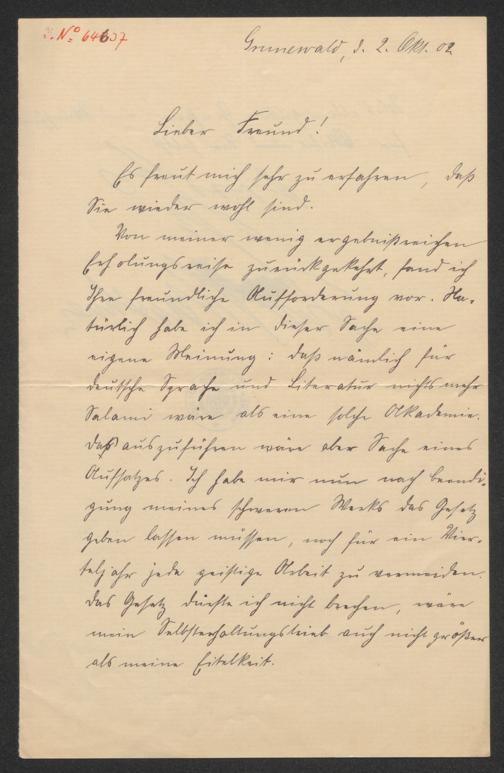 J. No 64607
Grunewald, d. 2. Okt. 02
Lieber Freund!
Es freut mich sehr zu erfahren, daß
Sie wieder wohl sind.
Von meiner wenig ergebnißreichen
Erholungsreise zurückgekehrt, fand ich
Ihre freundliche Aufforderung vor. Na-
türlich habe ich in dieser Sache eine
eigene Meinung: daß nämlich für
deutsche Sprache und Literatur nichts mehr
Salami wäre als eine solche Akademie.
Das auszuführen wäre aber Sache eines
Aufsatzes. Ich habe mir nun nach Beendi-
gung meines schweren Werks das Gesetz
geben lassen müssen, noch für ein Vier-
teljahr jede geistige Arbeit zu vermeiden.
Das Gesetz dürfte ich nicht brechen, wäre
mein Selbsterhaltungstrieb auch nicht größer
als meine Eitelkeit.